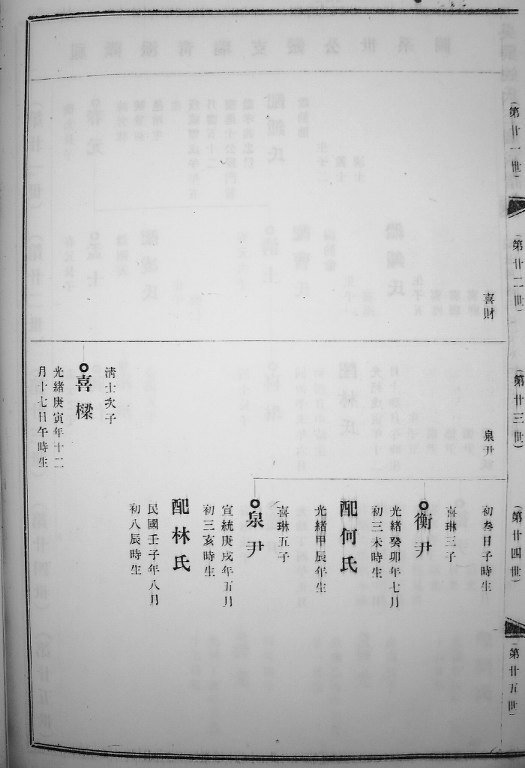 (第廿一世)
(第廿二世)
(第廿三世)
(第廿四世)
(第廿五世)
喜財
泉尹
初叁日子時生
喜琳三子
衡尹
光緒癸卯年七月
初三未時生
配何氏
光緒甲辰年生
喜琳五子
泉尹
宣統庚戌年五月
初三亥時生
配林氏
民國壬子年八月
初八辰時生
清士次子
喜樑
光緒庚寅年十二
月十七日午時生